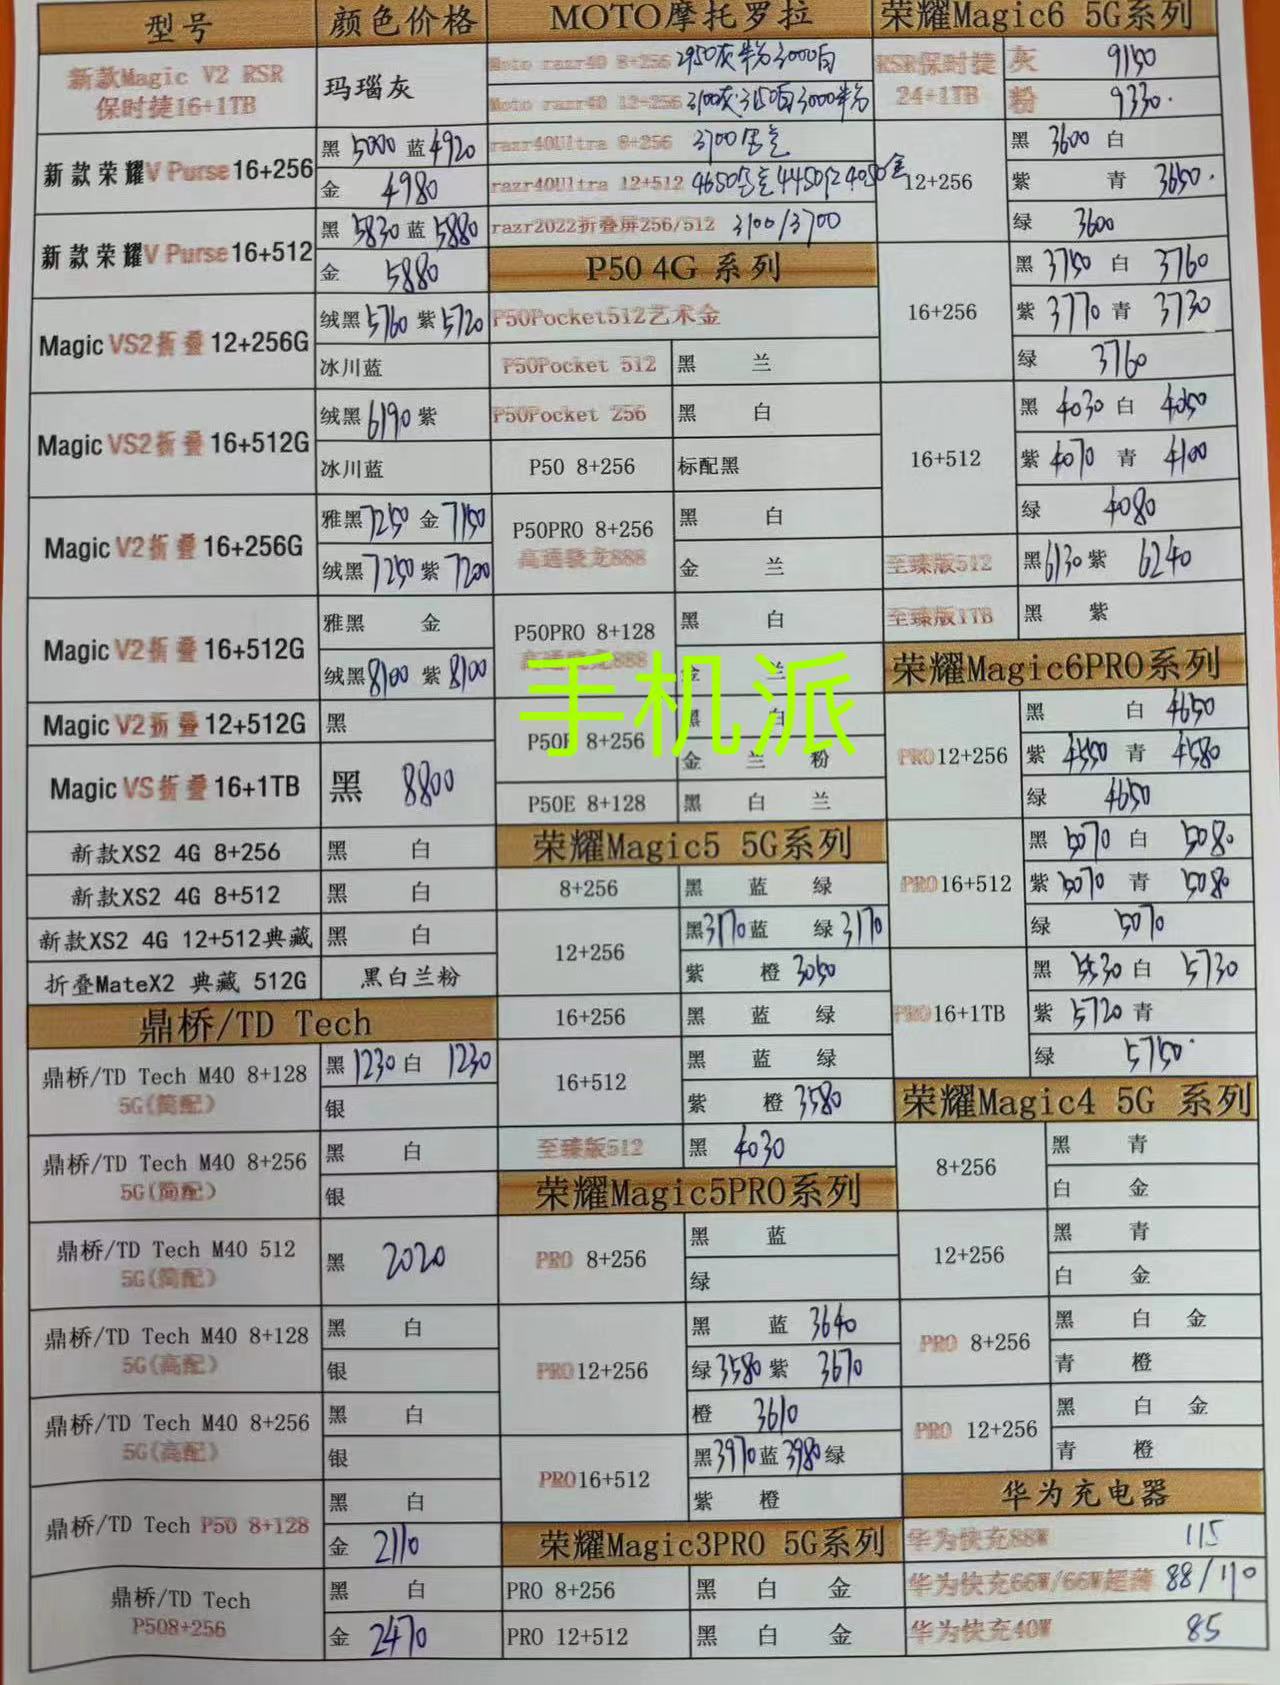 型号 颜色价格
新款Magic V2 RSR
保时捷16+1TB
玛瑙灰
新款荣耀V Purse 16+256
黑 5000 蓝 4920
金 4980
新款荣耀V Purse 16+512
黑 5830 蓝 5880
金 5880
Magic VS2折叠 12+256G
绒黑 5760 紫 5720
冰川蓝
Magic VS2折叠 16+512G
绒黑 6190 紫
冰川蓝
Magic V2折叠 16+256G
雅黑 7250 金 7150
绒黑 7250 紫 7200
Magic V2折叠 16+512G
雅黑 金
绒黑 8100 紫 8100
Magic V2折叠 12+512G
黑
Magic VS折叠 16+1TB
黑 8800
新款XS2 4G 8+256
黑 白
新款XS2 4G 8+512
黑 白
新款XS2 4G 12+512典藏
黑 白
折叠MateX2 典藏 512G
黑白兰粉
鼎桥/TD Tech
鼎桥/TD Tech M40 8+128
5G(简配)
黑 1230 白 1230
银
鼎桥/TD Tech M40 8+256
5G(简配)
黑 白
银
鼎桥/TD Tech M40 512
5G(简配)
黑 2020
鼎桥/TD Tech M40 8+128
5G(高配)
黑 白
银
鼎桥/TD Tech M40 8+256
5G(高配)
黑 白
银
鼎桥/TD Tech P50 8+128
黑 白
金 2110
鼎桥/TD Tech
P508+256
黑 白
金 2470
MOTO摩托罗拉
Moto razr40 8+256 2950灰 3000白
Moto razr40 12+256 3100灰 3150白 3000
razr40Ultra 8+256 3700
razr40Ultra 12+512 4650 4450红 4050金
razr2022折叠屏256/512 3100/3700
P50 4G 系列
P50Pocket512艺术金
P50Pocket 512
黑 兰
P50Pocket 256
黑 白
P50 8+256
标配黑
P50PRO 8+256
高通骁龙888
黑 白
金 兰
P50PRO 8+128
高通骁龙888
黑 白
金 兰
手机派
P50E 8+256
黑 白
金 兰 粉
P50E 8+128
黑 白 兰
荣耀Magic5 5G系列
8+256
黑 蓝 绿
12+256
黑 3170 蓝 绿 3170
紫 橙 3050
16+256
黑 蓝 绿
16+512
黑 蓝 绿
紫 橙 3580
至臻版512
黑 4030
荣耀Magic5PRO系列
PRO 8+256
黑 蓝
绿
PRO12+256
黑 蓝 3640
绿 3580 紫 3670
橙 3610
PRO16+512
黑 3970 蓝 3980 绿
紫 橙
荣耀Magic3PRO 5G系列
PRO 8+256
黑 白 金
PRO 12+512
黑 白 金
荣耀Magic6 5G系列
RSR保时捷
24+1TB
灰 9150
粉 9330.
12+256
黑 3600 白
紫 青 3650.
绿 3600
16+256
黑 3750 白 3760
紫 3770 青 3730
绿 3760
16+512
黑 4030 白 4050
紫 4070 青 4100
绿 4080
至臻版512
黑 6130 紫 6240
至臻版1TB
黑 紫
荣耀Magic6PRO系列
PRO12+256
黑 白 4650
紫 4550 青 4580
绿 4650
PRO16+512
黑 5070 白 5080
紫 5070 青 5080
绿 5070
PRO16+1TB
黑 5530 白 5730
紫 5720 青
绿 5750.
荣耀Magic4 5G 系列
8+256
黑 青
白 金
12+256
黑 青
白 金
PRO 8+256
黑 白 金
青 橙
PRO 12+256
黑 白 金
青 橙
华为充电器
华为快充88W 115
华为快充66W/66W超薄 88/110
华为快充40W 85